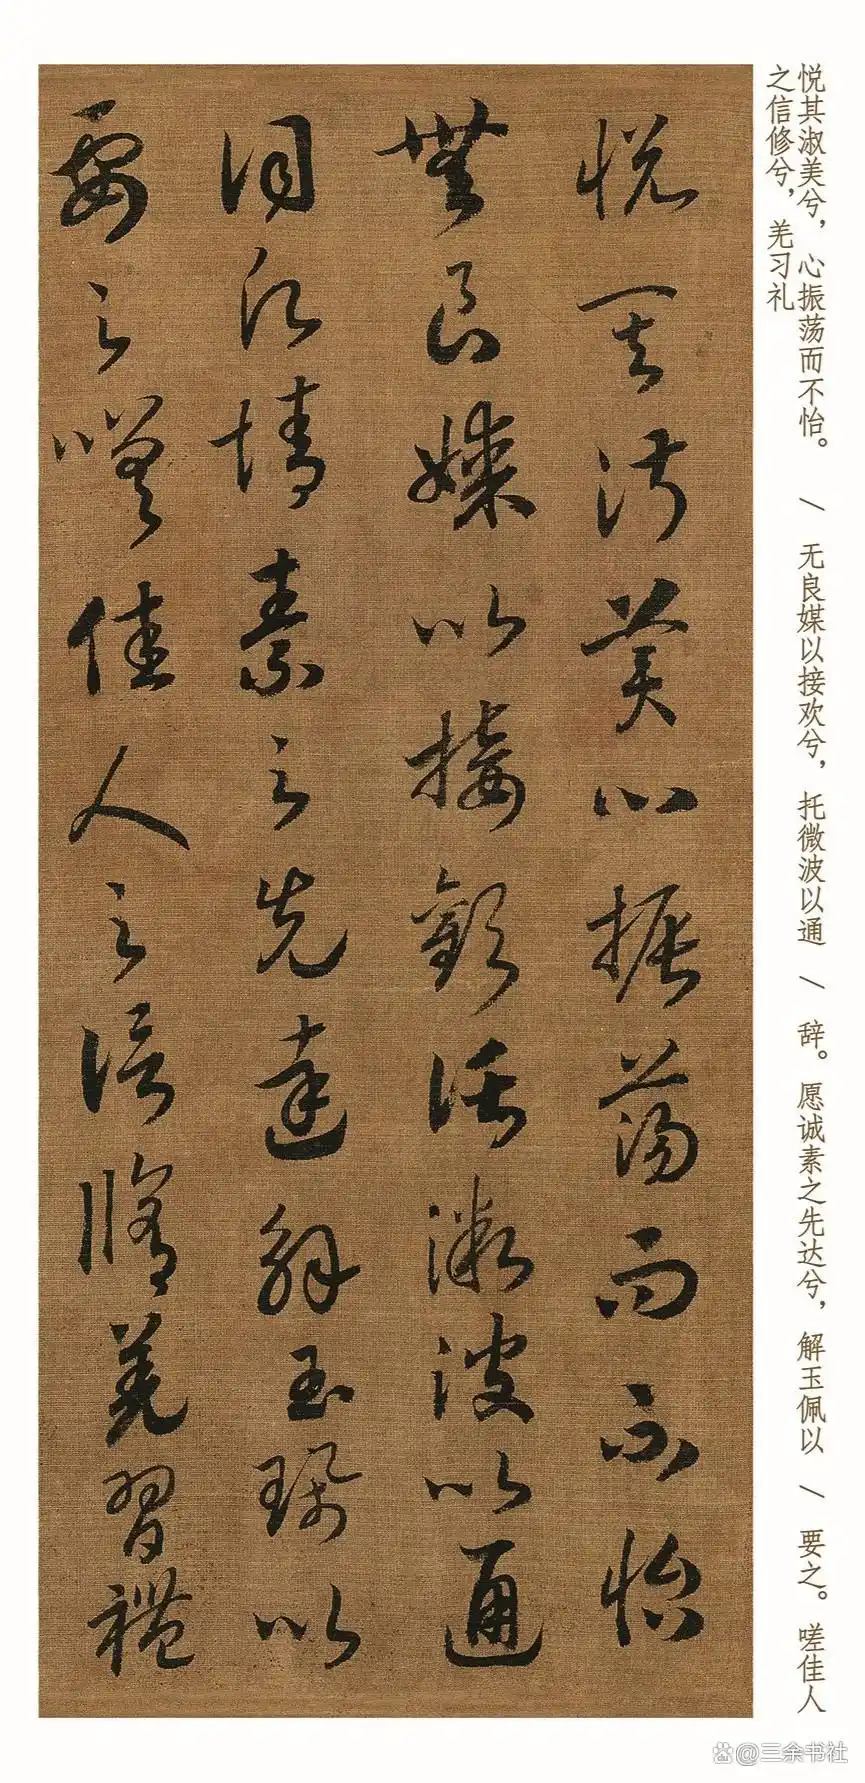 悦其淑美兮，心振荡而不怡。 / 无良媒以接欢兮，托微波以通 / 辞。愿诚素之先达兮，解玉佩以 / 要之。嗟佳人
之信修兮，羌习礼
悦其淑美心振蕩而不怡
無良媒以接歡託微波以通
詞情素之先達解玉珮以
要之嗟佳人之信脩羌習禮
@三余书社